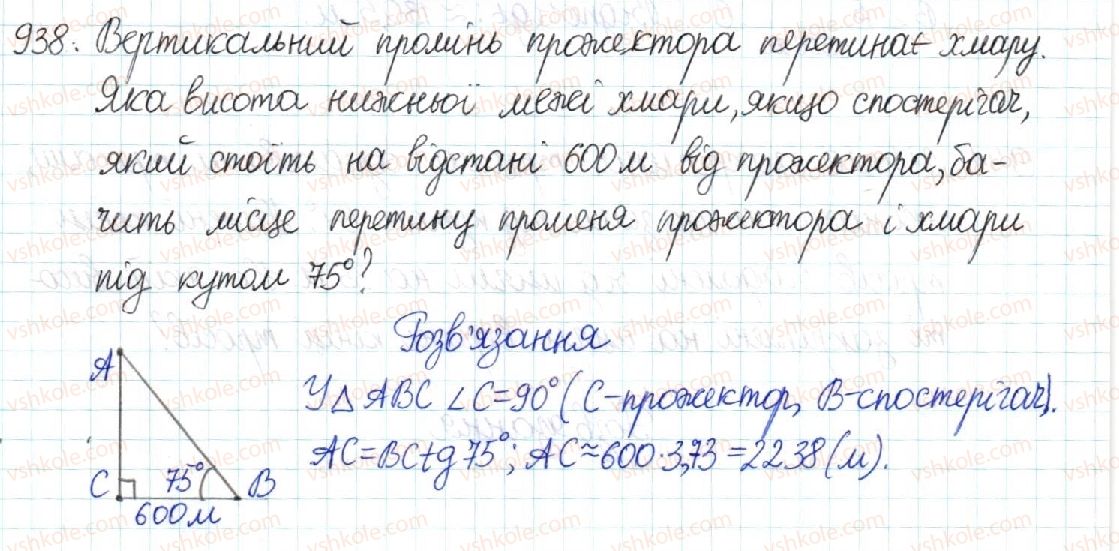 938. Вертикальний промінь прожектора перетинає хмару.
Яка висота нижньої межі хмари, якщо спостерігач,
який стоїть на відстані 600 м від прожектора, ба-
чить місце перетину променя прожектора і хмари
під кутом 75°?
Розв'язання
У △ ABC ∠C=90° (C-прожектор, B-спостерігач).
AC=BCtg75°; AC≈600·3,73=2238(м).
A
C 75° B
600м